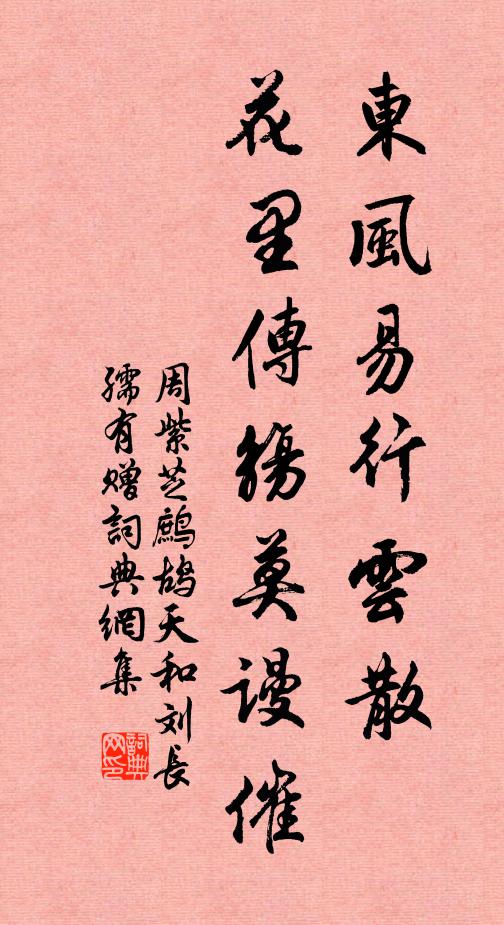 東風易行雲散
花里傳觴莫謾催
周紫芝鷓鴣天和刘長
孺有赠詞典網集
詞典
网印